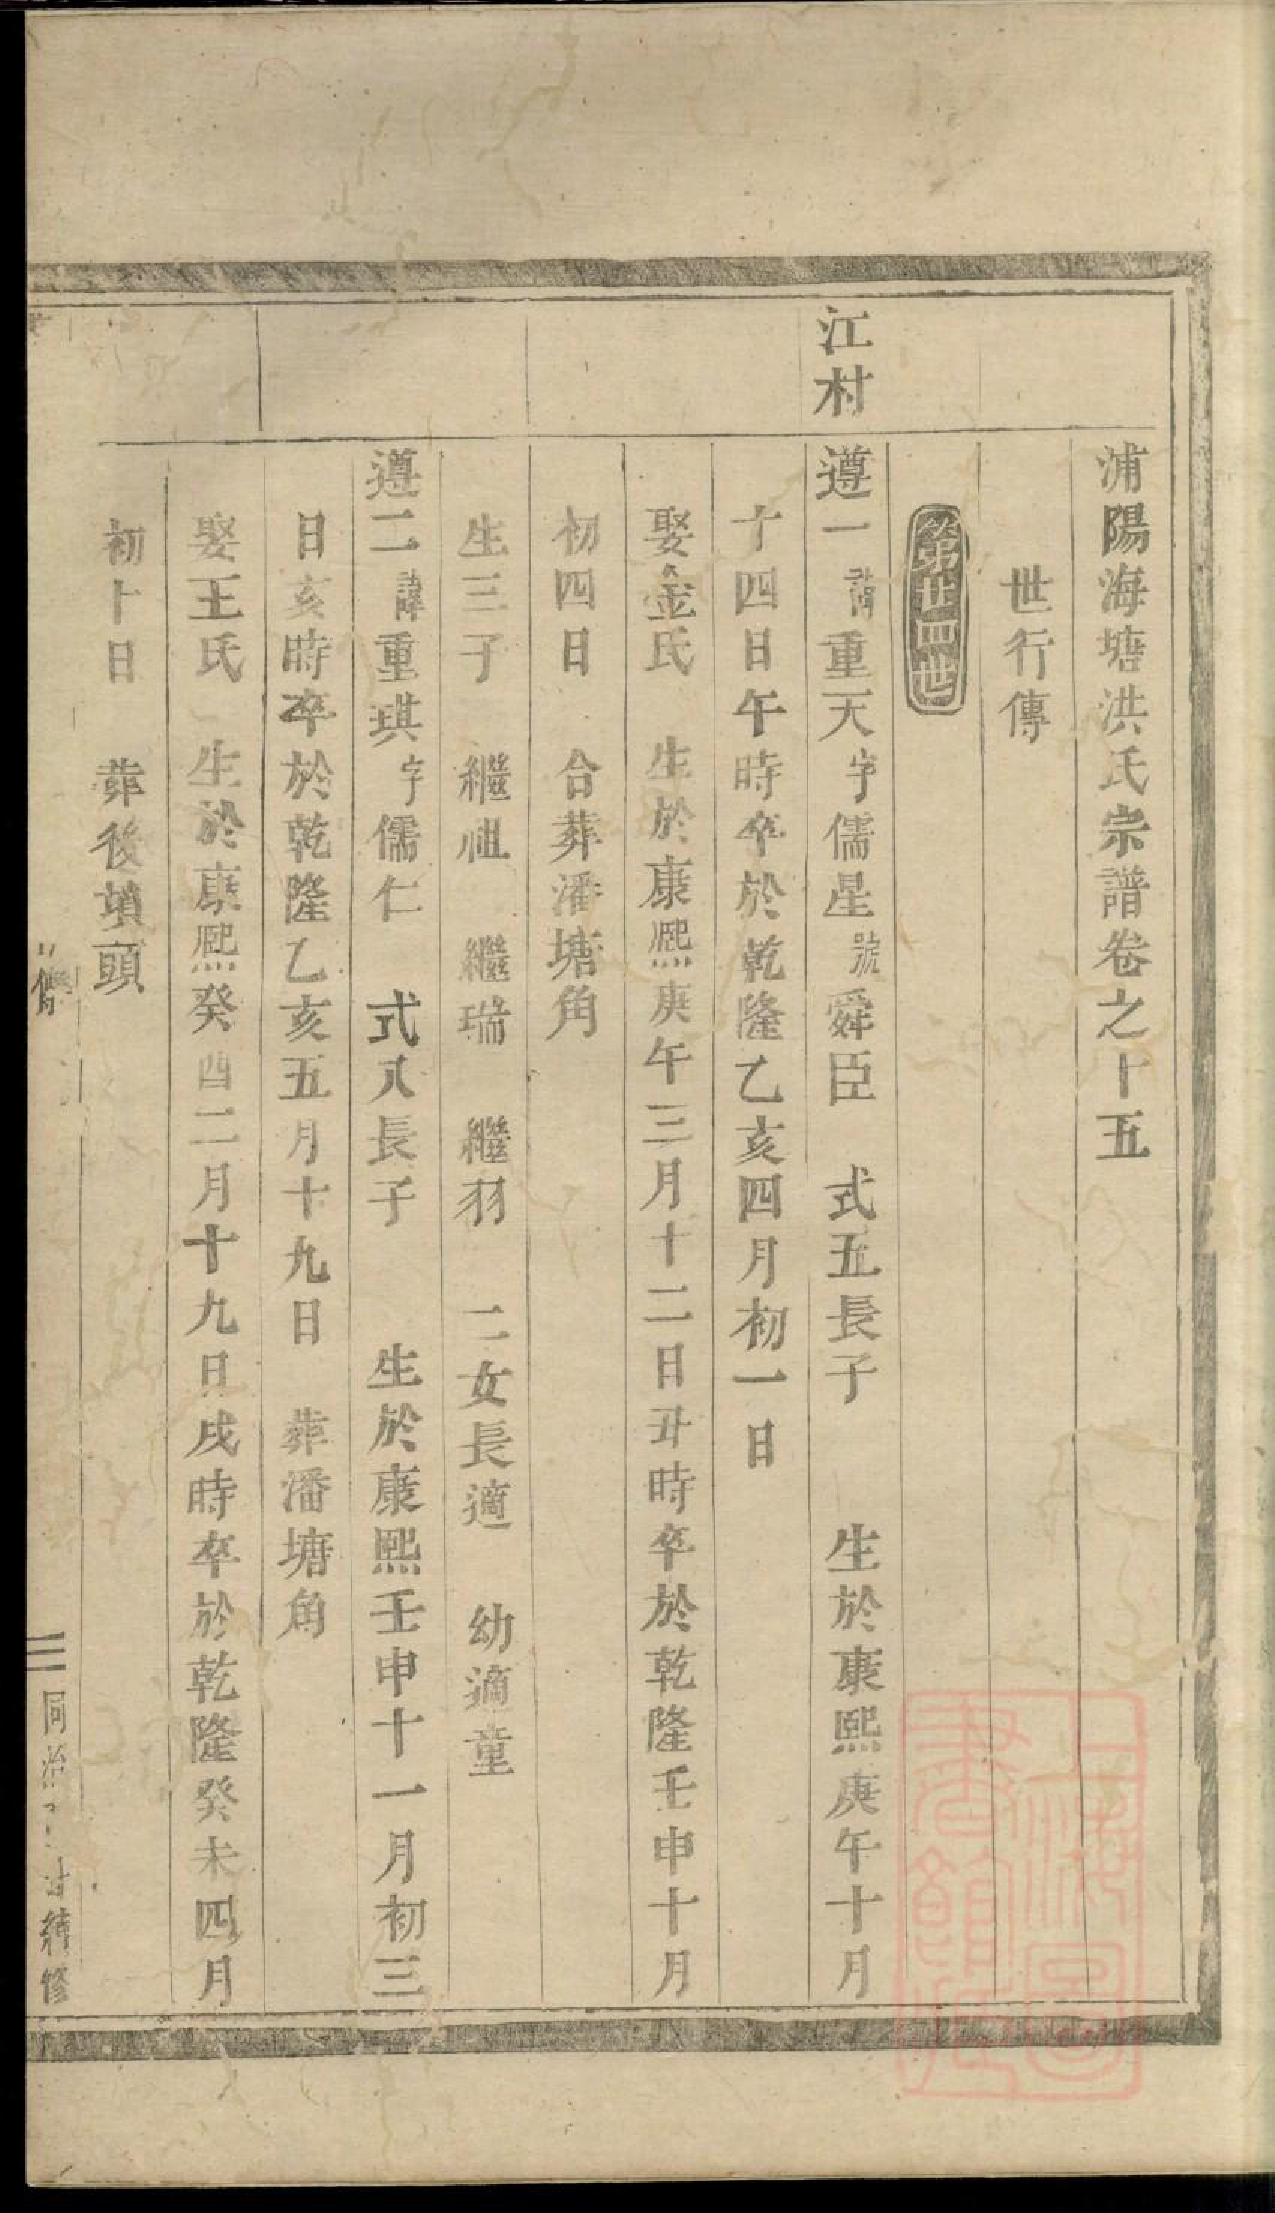 浦陽海塘洪氏宗譜卷之十五
世行傳
第廿四世
江村
遵一諱重天字儒星號舜臣 式五長子 生於康熙庚午十月
十四日午時卒於乾隆乙亥四月初一日
娶金氏 生於康熙庚午三月十二日丑時卒於乾隆壬申十月
初四日 合葬潘塘角
生三子 繼祖 繼瑞 繼羽 二女長適 幼適童
遵二諱重琪字儒仁 式又長子 生於康熙壬申十一月初三
日亥時卒於乾隆乙亥五月十九日 葬潘塘角
娶王氏 生於康熙癸酉二月十九日戌時卒於乾隆癸未四月
初十日 葬後墳頭
同治 續修
上海圖書館藏